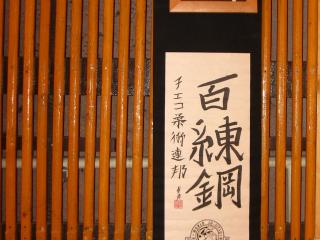 百練鋼
チェコ柔術連邦